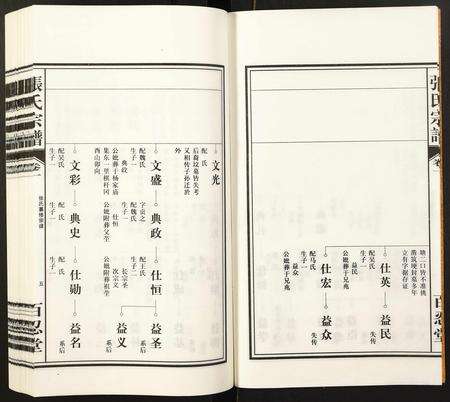 張氏宗譜
卷一
百忍堂
塘三口皆不准執
立有字据存证
仕英
配吴氏
生子一
益民
公妣葬于兄兆
益民
失传
仕宏
配马氏
生子一
益众
公妣葬于兄兆
益众
失传
文光
配 氏
后裔坟墓皆失考
又相传子孙迁於
外
文盛
配魏氏
生子一
典政
公妣葬于杨家庙
集东一里棋杆冈
西山卯向
典政
字贡之
配魏氏
生子一
仕恒
公妣附葬父茔
仕恒
配王氏
生子二
长宗圣
次宗文
公妣附葬祖茔
益圣
系后
益义
系后
文彩
配吴氏
生子一
典史
配 氏
生子一
仕勋
配 氏
生子一
益名
系后
張氏宗譜
卷一
張氏纂修宗譜
五
百忍堂